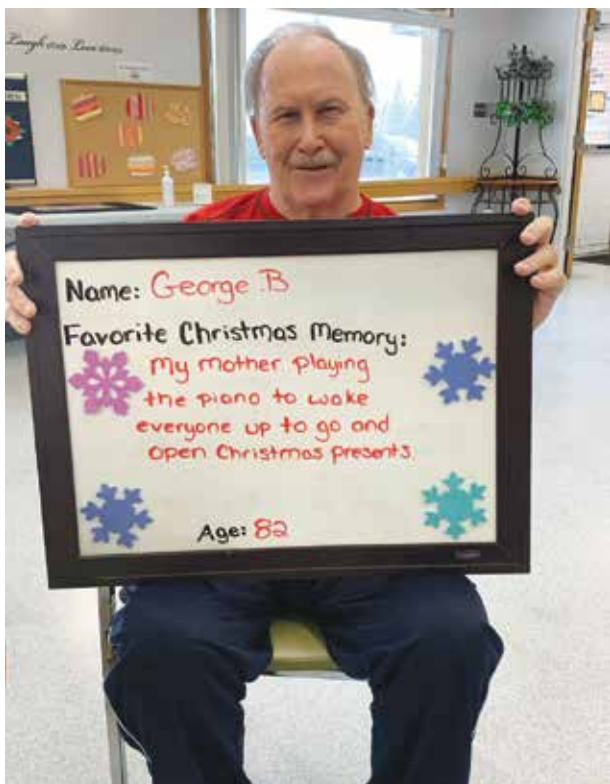 Laugh
Name: George B
Favorite Christmas Memory:
My mother playing
the piano to wake
everyone up to go and
open Christmas presents.
Age: 82